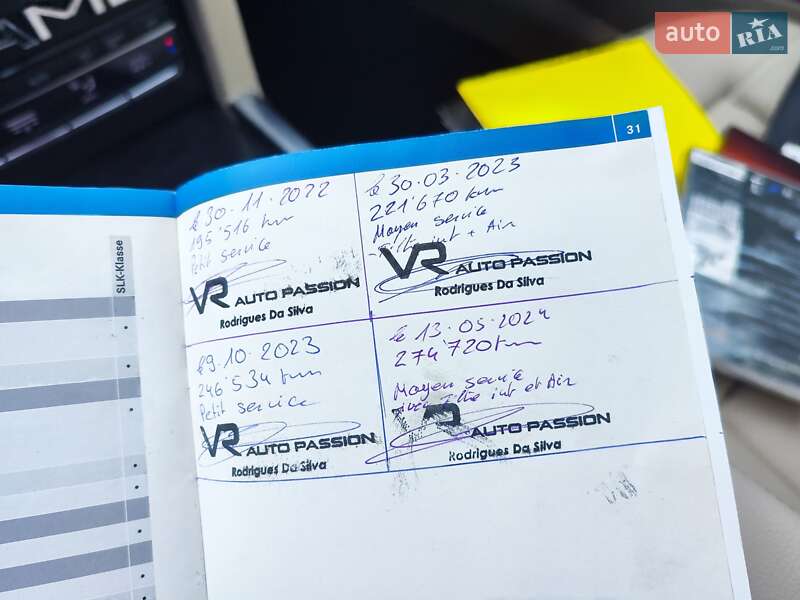 AMG
auto RIA
.com
31
SLK-Klasse
le 30.11.2022
195'516 km
Petit service
VR AUTO PASSION
Rodrigues Da Silva
le 30.03.2023
221'670 km
Moyen service
- Filt. int + Air
VR AUTO PASSION
Rodrigues Da Silva
9.10.2023
246'534 km
Petit service
VR AUTO PASSION
Rodrigues Da Silva
le 13.05.2024
274'720 km
Moyen service
avec filtre int et Air
AUTO PASSION
Rodrigues Da Silva